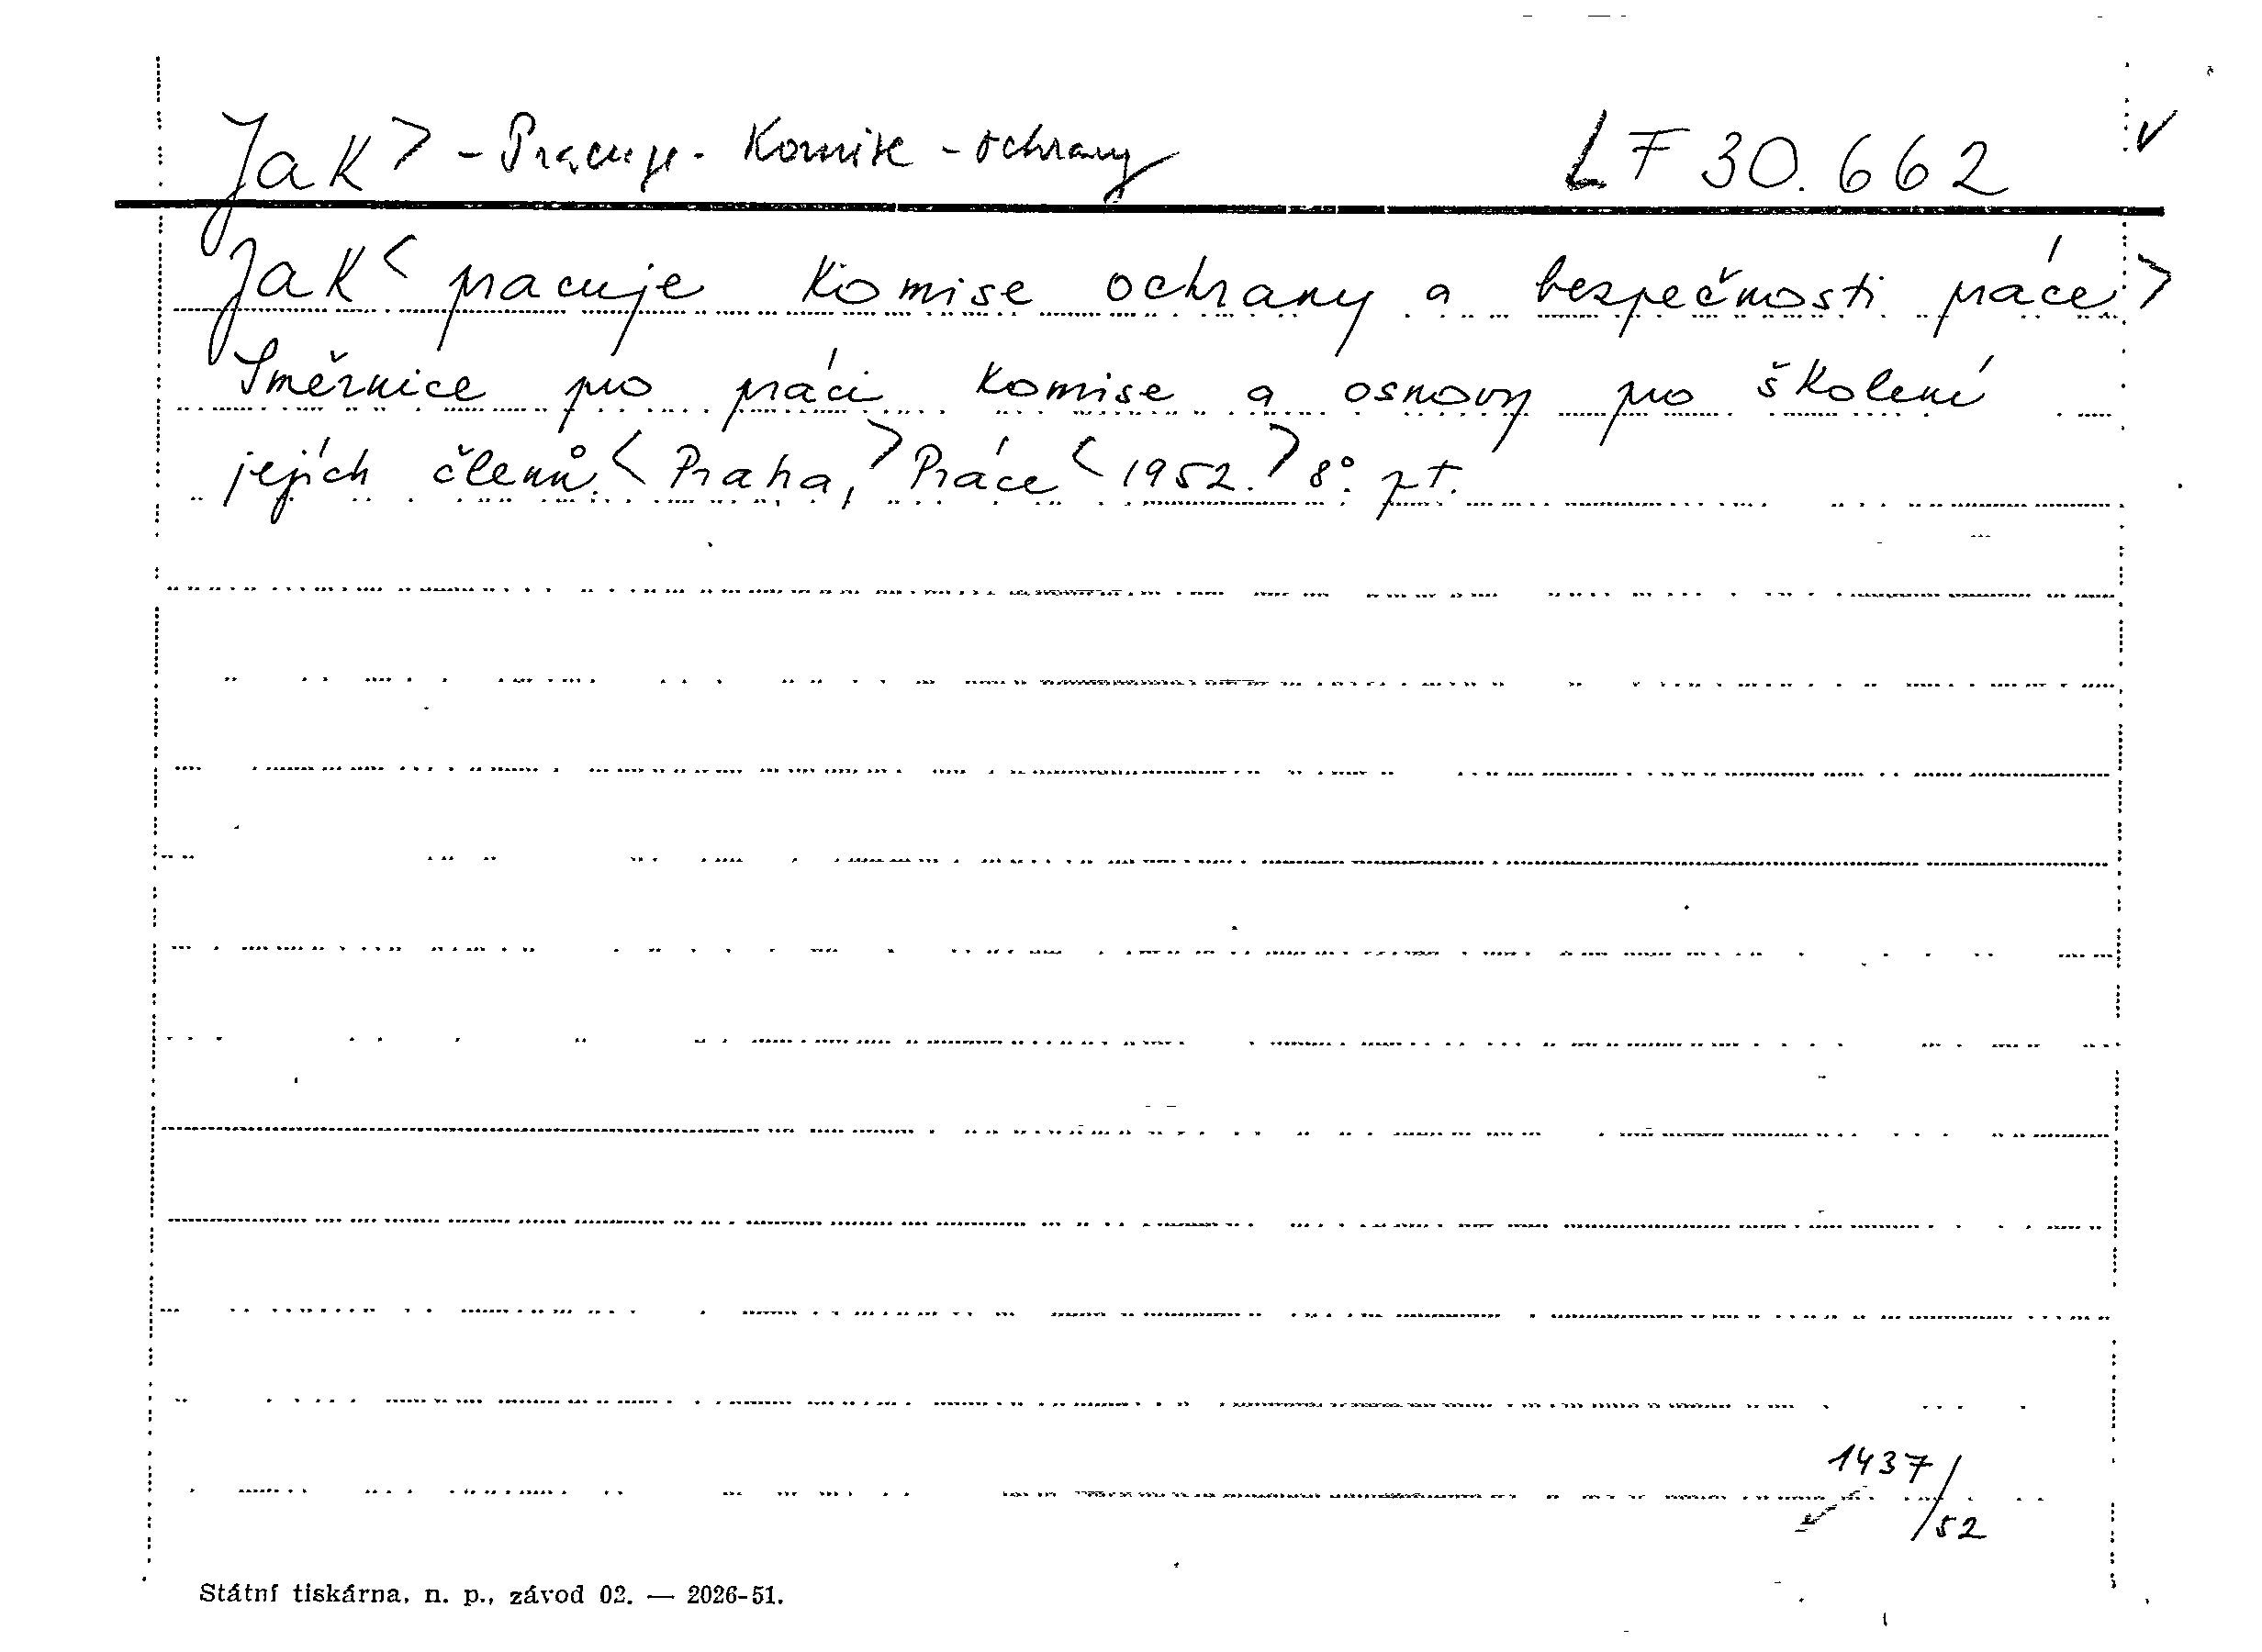 Jak> - Pracuje - Komise - ochrany LF 30.662 √
Jak< pracuje komise ochrany a bezpečnosti práce>
Směrnice pro práci komise a osnovy pro školení
jejích členů.< Praha,> Práce< 1952.> 8°. pt.
1437/52
Státní tiskárna, n. p., závod 02. — 2026-51.